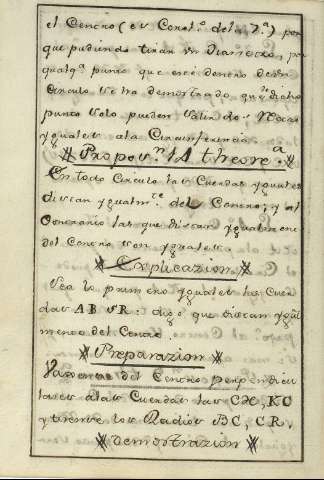 el Centro (es Const.ⁿ dela 7.ª) por
que pudiendo tirar un Diametro por
qualq.ª punto que este dentro de un
Circulo se ha demostrado que dicho
punto solo pueden salir dos Rectas
yguales ala Circunferencia
Propos.ⁿ 14 theore.ª
En todo Circulo las Cuerdas yguales
distan ygualm.te del Centro; y al
Contrario las que distan ygualmente
del Centro son yguales.
Explicazion
Sea lo primero yguales las Cuer
das AB SR: digo que distan ygual
mente del Centro.
Preparazion
del Centro perpendicu
lares alas Cuerdas las CX, KC
y tirense los Radios BC, CR.
Demostrazion